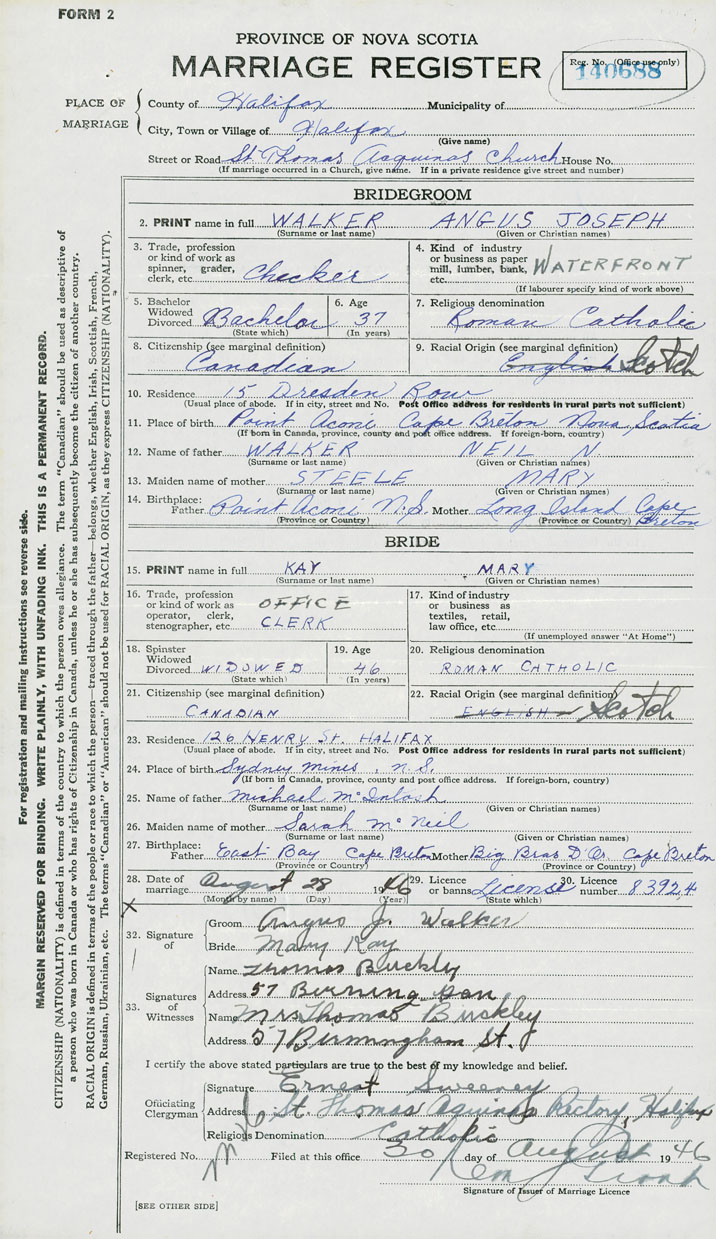 FORM 2
PROVINCE OF NOVA SCOTIA
MARRIAGE REGISTER
Reg. No. (Office use only)
140688
PLACE OF MARRIAGE
County of Halifax Municipality of
City, Town or Village of Halifax
(Give name)
Street or Road St Thomas Acquinas Church House No.
(If marriage occurred in a Church, give name. If in a private residence give street and number)
BRIDEGROOM
2. PRINT name in full WALKER ANGUS JOSEPH
(Surname or last name) (Given or Christian names)
3. Trade, profession or kind of work as spinner, grader, clerk, etc. Checker
4. Kind of industry or business as paper mill, lumber, bank, etc. WATERFRONT
(If labourer specify kind of work above)
5. Bachelor Widowed Divorced Bachelor
(State which)
6. Age 37
(In years)
7. Religious denomination
Roman Catholic
8. Citizenship (see marginal definition)
Canadian
9. Racial Origin (see marginal definition)
English Scotch
10. Residence 15 Dresden Row
(Usual place of abode. If in city, street and No. Post Office address for residents in rural parts not sufficient)
11. Place of birth Point Aconi Cape Breton Nova Scotia
(If born in Canada, province, county and post office address. If foreign-born, country)
12. Name of father WALKER NEIL N
(Surname or last name) (Given or Christian names)
13. Maiden name of mother STEELE MARY
(Surname or last name) (Given or Christian names)
14. Birthplace: Father Point Aconi N.S. Mother Long Island Cape Breton
(Province or Country) (Province or Country)
BRIDE
15. PRINT name in full KAY MARY
(Surname or last name) (Given or Christian names)
16. Trade, profession or kind of work as operator, clerk, stenographer, etc. OFFICE CLERK
17. Kind of industry or business as textiles, retail, law office, etc.
(If unemployed answer "At Home")
18. Spinster Widowed Divorced WIDOWED
(State which)
19. Age 46
(In years)
20. Religious denomination
ROMAN CATHOLIC
21. Citizenship (see marginal definition)
CANADIAN
22. Racial Origin (see marginal definition)
ENGLISH Scotch
23. Residence 126 HENRY St. HALIFAX
(Usual place of abode. If in city, street and No. Post Office address for residents in rural parts not sufficient)
24. Place of birth Sydney Mines, N.S.
(If born in Canada, province, county and post office address. If foreign-born, country)
25. Name of father Michael McIntosh
(Surname or last name) (Given or Christian names)
26. Maiden name of mother Sarah McNeil
(Surname or last name) (Given or Christian names)
27. Birthplace: Father East Bay Cape Breton Mother Big Bras D'Or Cape Breton
(Province or Country) (Province or Country)
28. Date of marriage August 28 1946
(Month by name) (Day) (Year)
29. Licence or banns License
(State which)
30. Licence number 83924
X
32. Signature of
Groom Angus J. Walker
Bride Mary Kay
33. Signatures of Witnesses
Name Thomas Buckly
Address 57
Name Mrs Thomas Buckley
Address 57 Birmingham St.
I certify the above stated particulars are true to the best of my knowledge and belief.
Officiating Clergyman
Signature Ernest Sweeney
Address St Thomas Aquinas Rectory, Halifax
Religious Denomination Catholic
Registered No. Filed at this office 30 day of August 1946
Signature of Issuer of Marriage Licence
[SEE OTHER SIDE]
For registration and mailing instructions see reverse side.
MARGIN RESERVED FOR BINDING. WRITE PLAINLY, WITH UNFADING INK. THIS IS A PERMANENT RECORD.
CITIZENSHIP (NATIONALITY) is defined in terms of the country to which the person owes allegiance. The term "Canadian" should be used as descriptive of
a person who was born in Canada or who has rights of Citizenship in Canada, unless he or she has subsequently become the citizen of another country.
RACIAL ORIGIN is defined in terms of the people or race to which the person—traced through the father—belongs, whether English, Irish, Scottish, French,
German, Russian, Ukrainian, etc. The terms "Canadian" or "American" should not be used for RACIAL ORIGIN, as they express CITIZENSHIP (NATIONALITY).